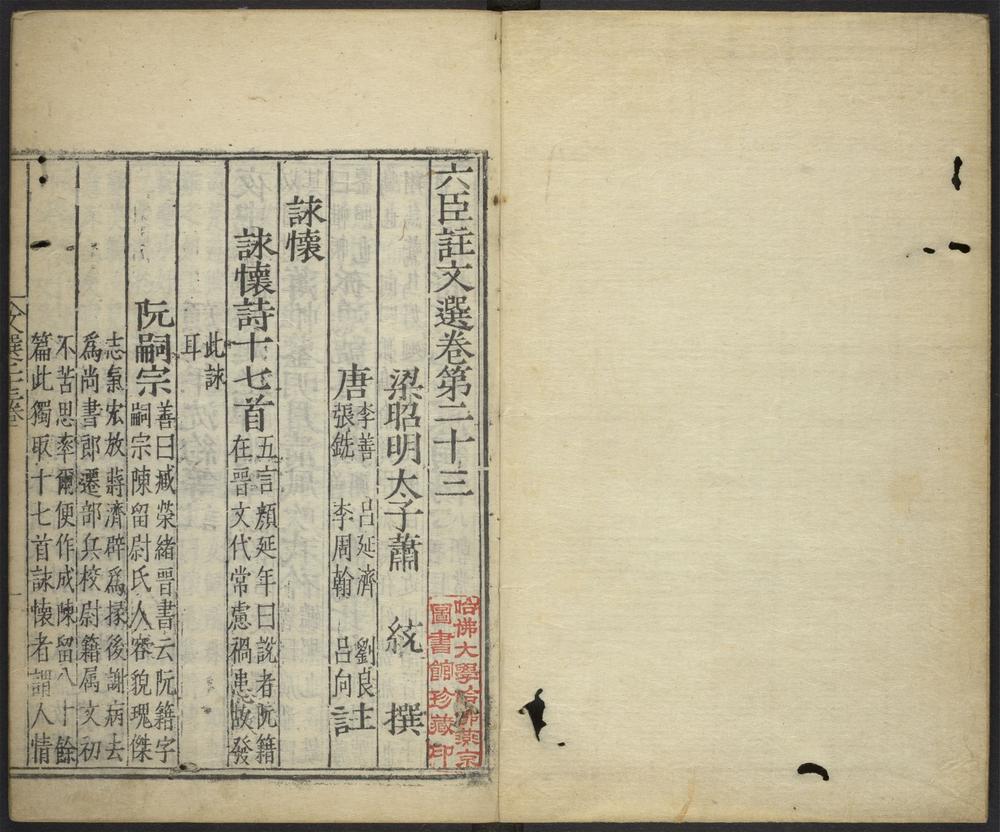 六臣註文選卷第二十三
梁昭明太子蕭統撰
唐
李善 呂延濟 劉良
張銑 李周翰 呂向
註
詠懷
詠懷詩十七首
五言顏延年曰說者阮籍
在晉文代常慮禍患故發
此詠
耳
阮嗣宗
善曰臧榮緒晉書云阮籍字
嗣宗陳留尉氏人容貌瑰傑
志氣宏放蔣濟辟爲掾後謝病去
爲尚書郎遷部兵校尉籍属文初
不苦思率爾便作成陳留八十餘
篇此獨取十七首詠懷者謂人情
哈佛大學哈佛燕京
圖書館珍藏印